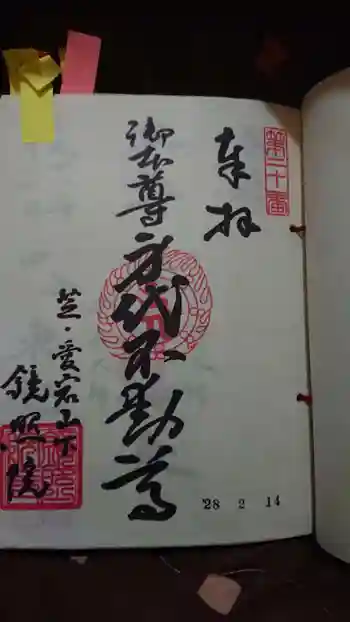 第二十番
奉拝
御本尊身代不動尊
芝・愛宕山下
鏡照院
'28 2 14